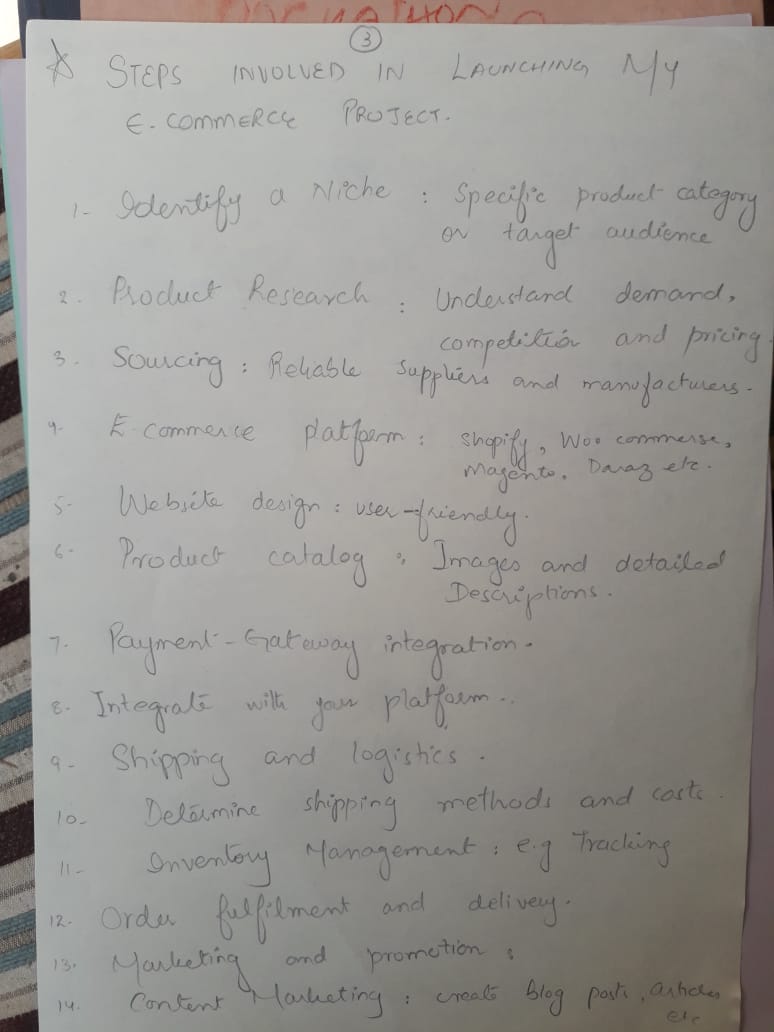 3
☆ STEPS INVOLVED IN LAUNCHING MY
E-COMMERCE PROJECT.
1- Identify a Niche : Specific product category
or target audience
2. Product Research : Understand demand,
competition and pricing.
3. Sourcing : Reliable suppliers and manufacturers.
4- E-commerce platform : shopify, Woo commerse,
Magento, Daraz etc.
5- Website design : user-friendly.
6- Product catalog : Images and detailed
Descriptions.
7. Payment-Gateway integration.
8. Integrate with your platform..
9- Shipping and logistics.
10- Determine shipping methods and costs.
11- Inventory Management : e.g Tracking
12. Order fulfilment and delivery.
13. Marketing and promotion :
14. Content Marketing : create blog posts, articles
etc